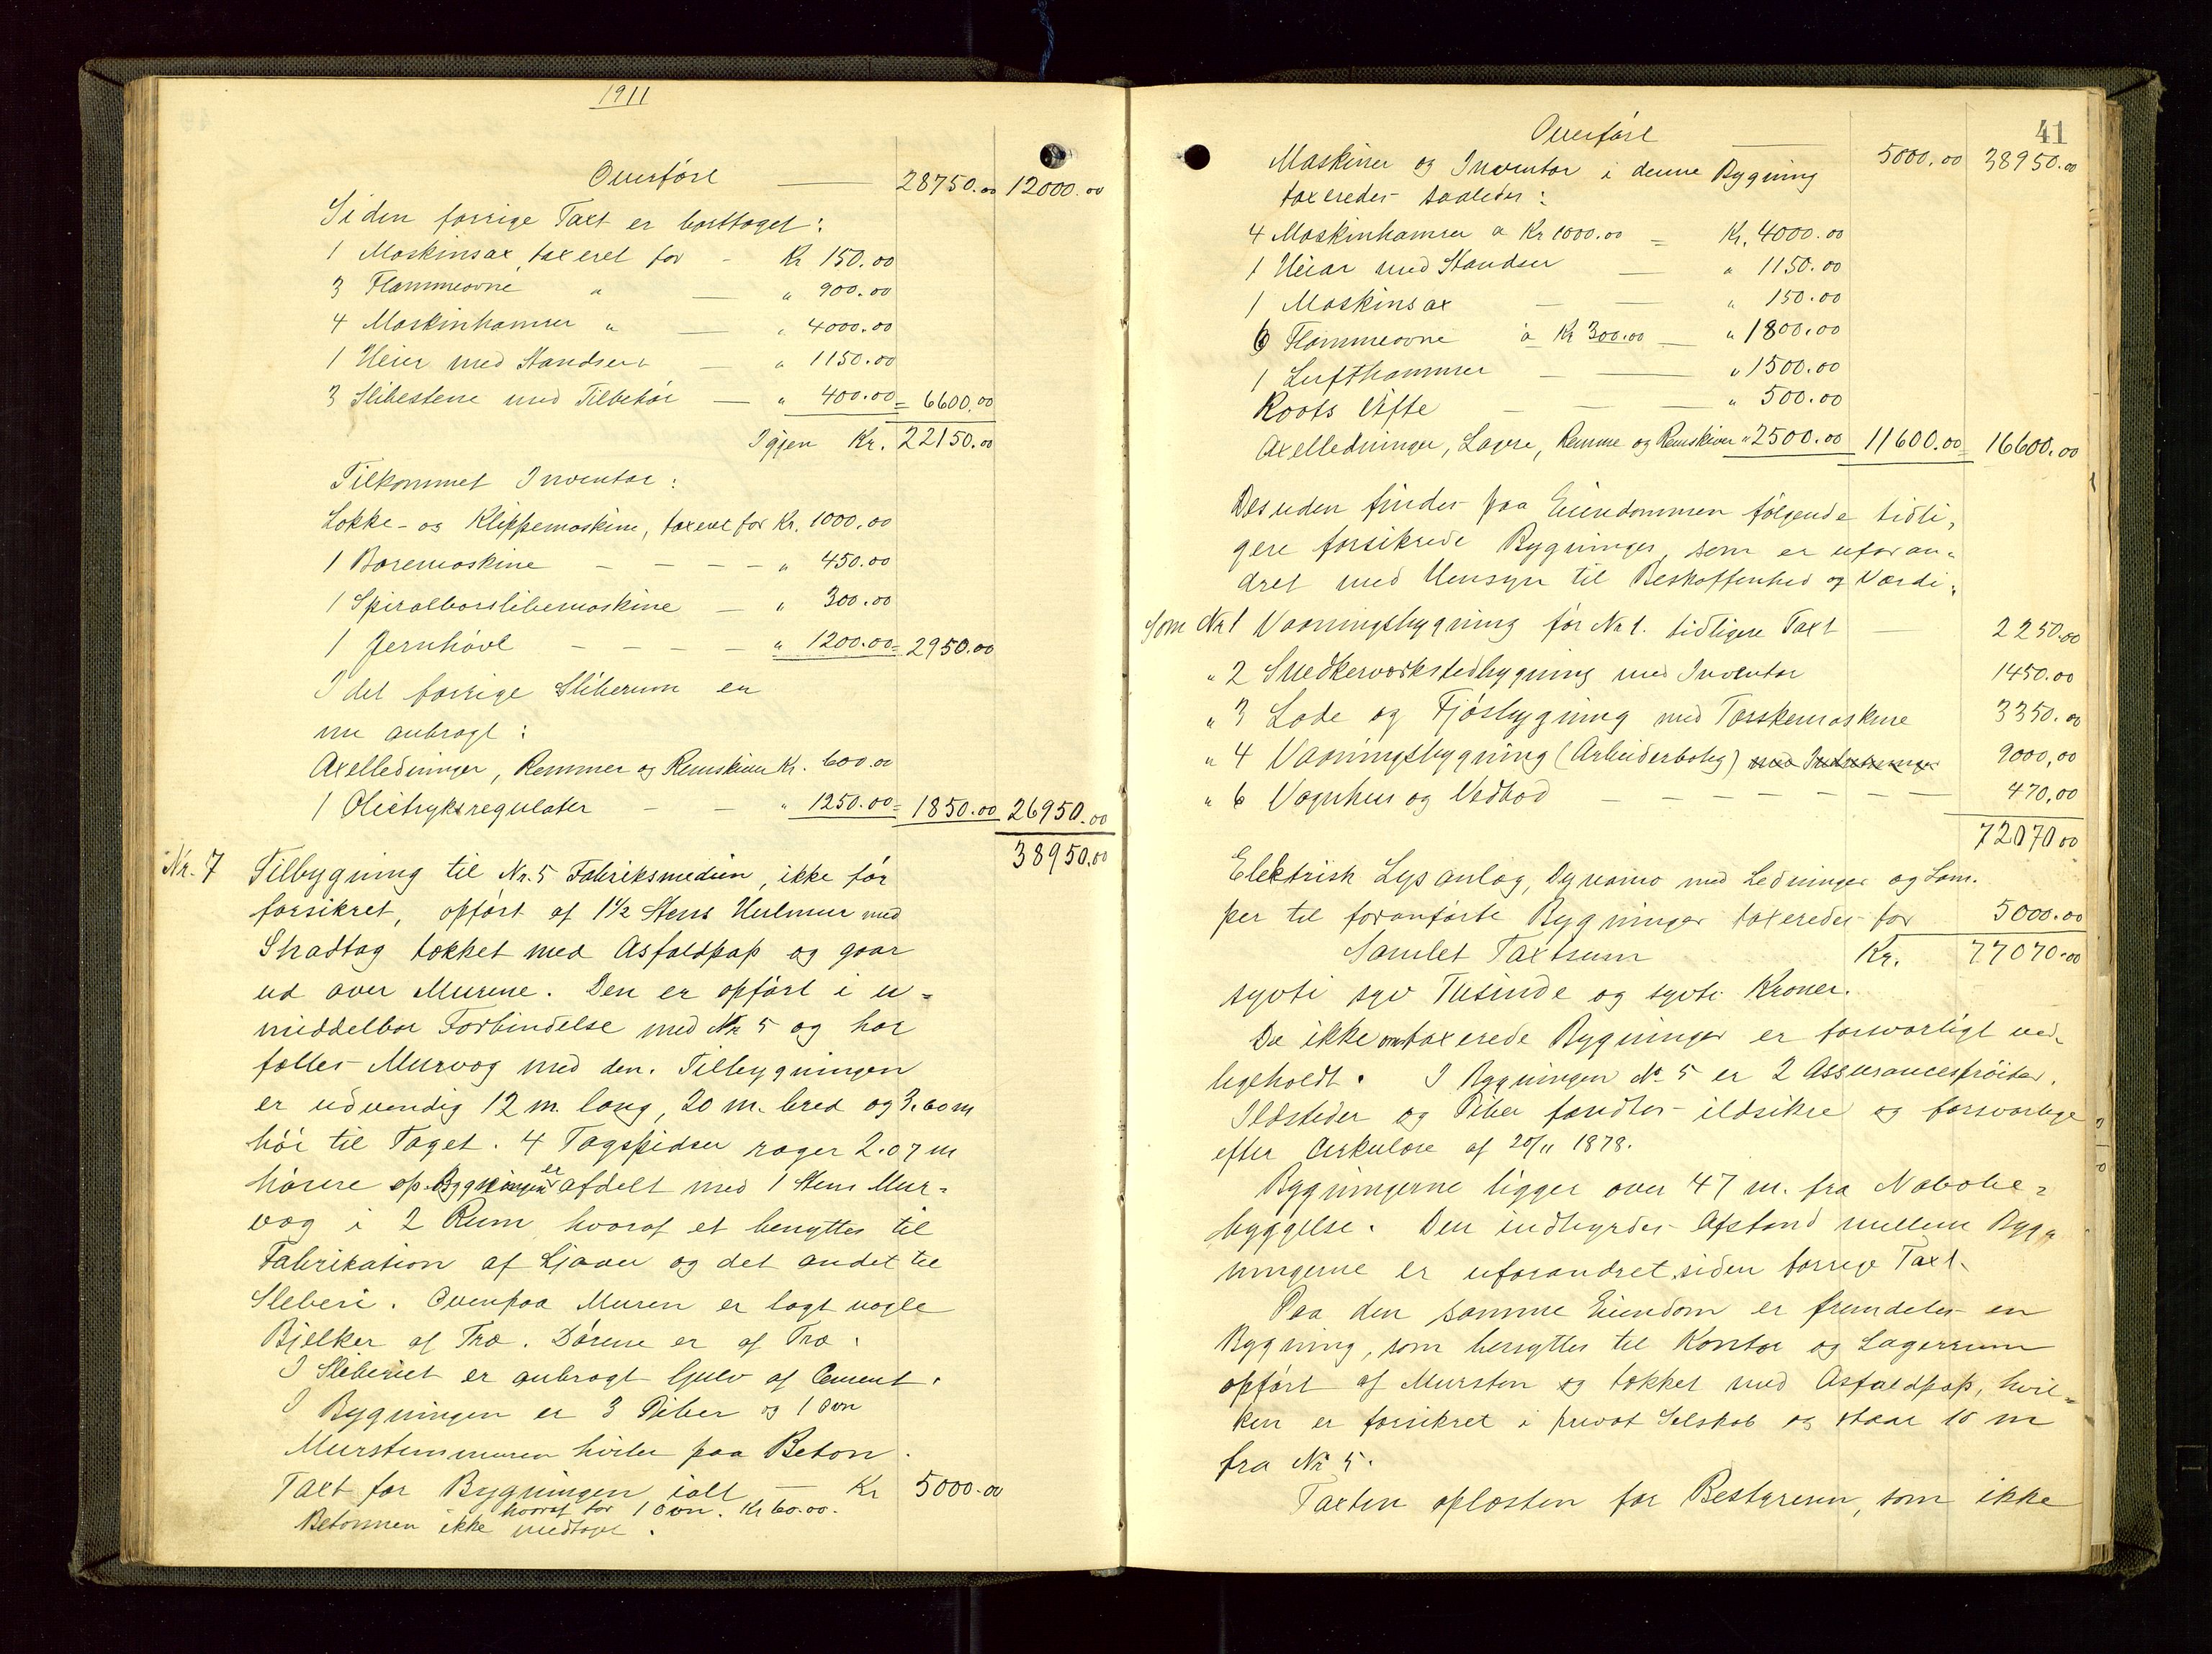 1911
Overført — 28750.00 12000.00
Siden forrige Taxt er borttaget:
1 Maskinsax, taxeret for - Kr 150.00
3 Flammeovne " — " 900.00
4 Maskinhamrer " — " 4000.00
1 Heiar med Standser — " 1150.00
3 Slibestene med Tilbehør — " 400.00 = 6600.00
Igjen Kr. 22150.00
Tilkommet Inventar:
Lokke- og Klippemaskine, taxeret for Kr. 1000.00
1 Boremaskine - - - - " 450.00
1 Spiralborslibemaskine — " 300.00
1 Jernhøvl - - - - " 1200.00 = 2950.00
I det forrige Sliberum er
nu anbragt:
Axelledninger, Remmer og Remskiver Kr. 600.00
1 Olietryksregulator - - " 1250.00 = 1850.00 26950.00
38950.00
Nr. 7 Tilbygning til Nr. 5 Fabriksmedien, ikke før
forsikret, opført af 1½ Stens Hulmur med
Skadtag tækket med Asfaldpap og gaar
ud over Murene. Den er opført i u-
middelbar Forbindelse med Nr 5 og har
fælles Murvæg med den. Tilbygningen
er udvendig 12 m. lang, 20 m. bred og 3.60 m
høi til Taget. 4 Tagspidser rager 2.07 m
høiere op. Bygningen er afdelt med 1 Stens Mur-
væg i 2 Rum hvoraf et benyttes til
Fabrikation af Ljaaer og det andet til
Sliberi. Ovenpaa Muren er lagt nogle
Bjelker af Træ. Dørene er af Træ.
I Sliberiet er anbragt Gulv af Cement.
I Bygningen er 3 Piber og 1 Ovn
Murstensmuren hviler paa Beton.
Taxt for Bygningen ialt — Kr 5000.00
hvoraf for 1 Ovn. Kr 60.00.
Betonnen ikke medtaget.
41
Overført — 5000.00 38950.00
Maskiner og Inventar i denne Bygning
taxeredes saaledes:
4 Maskinhamrer a Kr 1000.00 = Kr. 4000.00
1 Heiar med Standser — " 1150.00
1 Maskinsax - — " 150.00
6 Flammeovne à Kr 300.00 — " 1800.00
1 Lufthammer - — " 1500.00
Roots Vifte - - — " 500.00
Axelledninger, Lagere, Remme og Remskiver " 2500.00 11600.00 = 16600.00
Desuden findes paa Eiendommen følgende tidli-
gere forsikrede Bygninger, som er uforan-
dret med Hensyn til Beskaffenhed og Værdi:
Som Nr 1 Vaaningsbygning før Nr 1. tidligere Taxt — 2250.00
" 2 Snedkerværkstedbygning med Inventar 1450.00
" 3 Lade og Fjøsbygning med Tærskemaskine 3350.00
" 4 Vaaningsbygning (Arbeiderbolig) 9000.00
" 6 Vognhus og Vedbod - - - - - - 470.00
72070.00
Elektrisk Lysanlæg, Dynamo med Ledninger og Lam-
per til foranførte Bygninger taxeredes for 5000.00
Samlet Taxtsum Kr. 77070.00
sytti syv Tusinde og sytti Kroner.
De ikke omtaxerede Bygninger er forsvarligt ved-
ligeholdt. I Bygningen Nr 5 er 2 Assurancesprøiter.
Ildsteder og Piber fandtes ildsikre og forsvarlige
efter Cirkulære af 20/11 1878.
Bygningerne ligger over 47 m. fra Nabobe-
byggelse. Den indbyrdes Afstand mellem Byg-
ningerne er uforandret siden forrige Taxt.
Paa den samme Eiendom er fremdeles en
Bygning, som benyttes til Kontor og Lagerrum
opført af Mursten og tækket med Asfaldpap, hvil-
ken er forsikret i privat Selskab og staar 10 m
fra Nr 5.
Taxten oplæsten for Bestyreren, som ikke